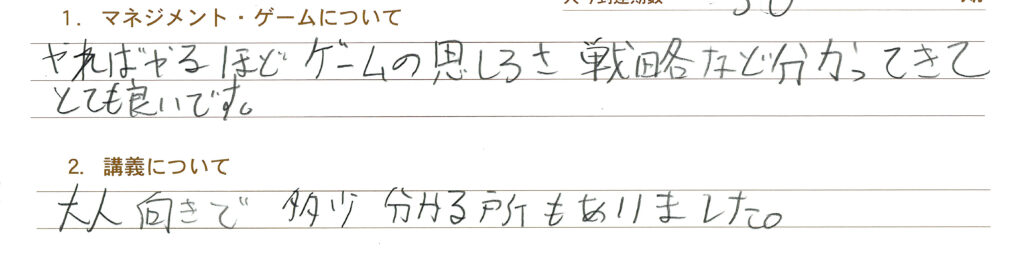 1. マネジメント・ゲームについて
やればやるほど ゲームの思しろさ 戦略など分かってきて
とても良いです。
2. 講義について
大人向きで 多少 分かる所もありました。